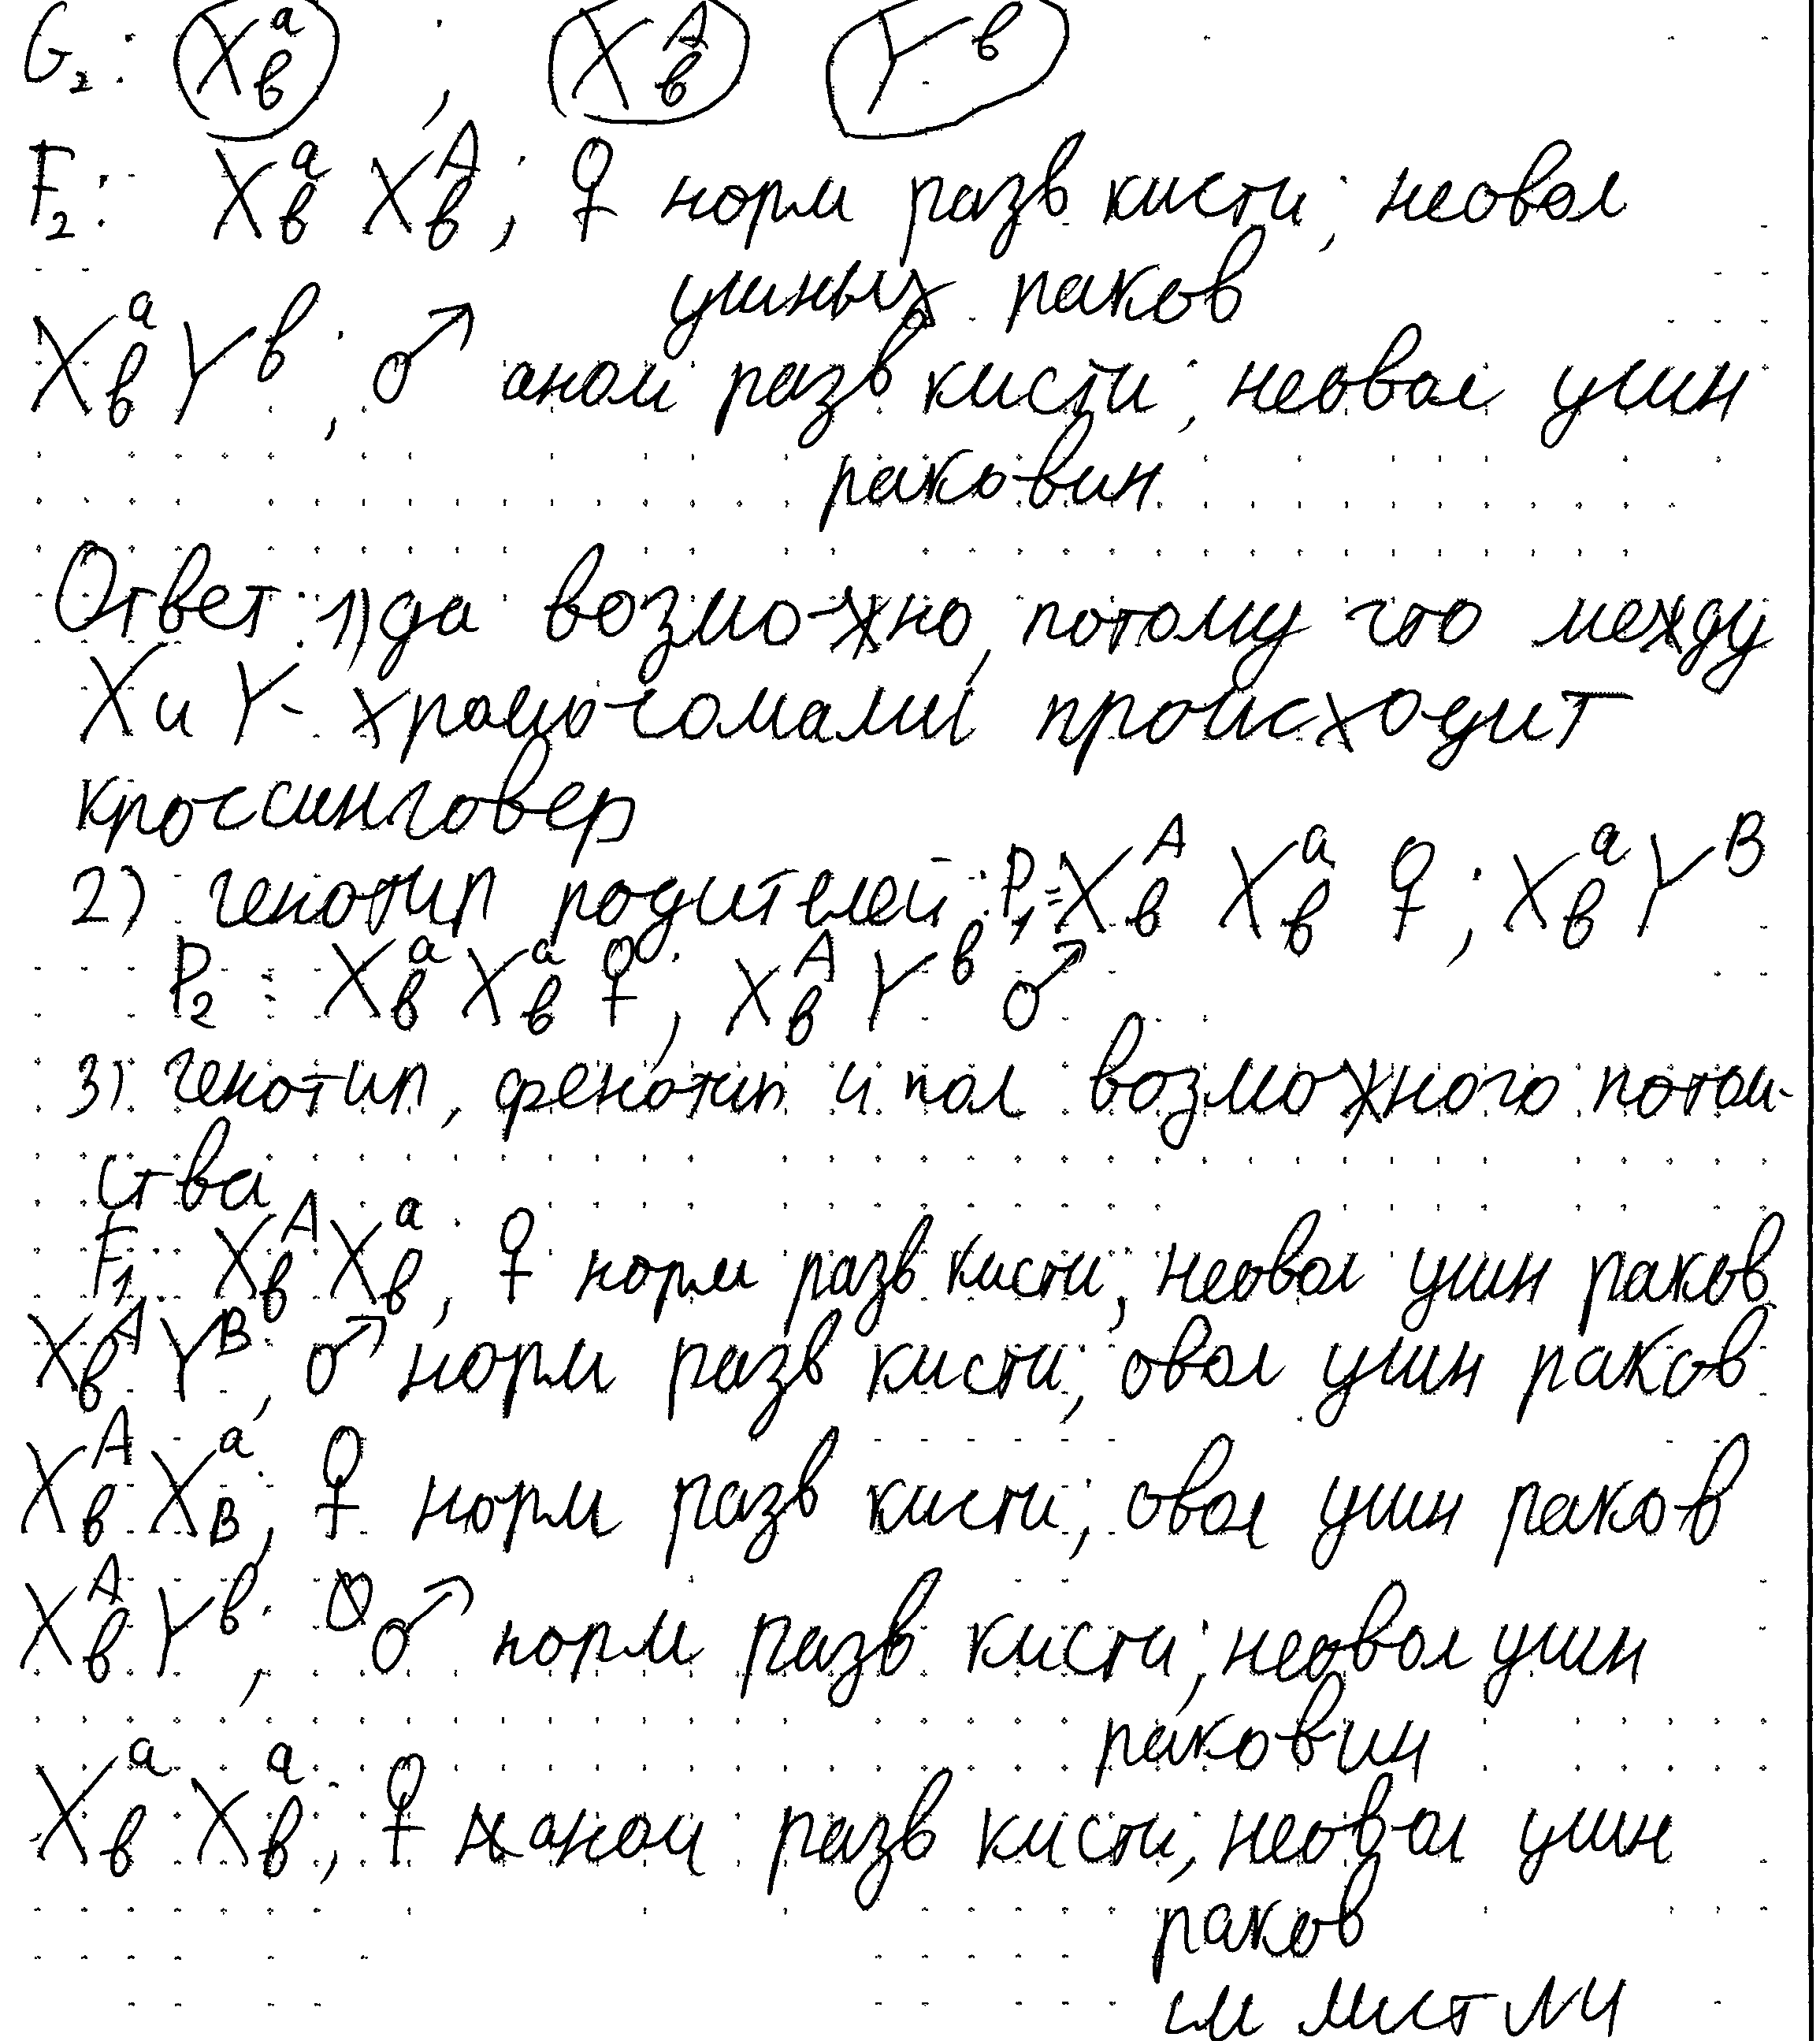 G₂: Xᵃв ; Xᴬв Yᵇ
F₂: Xᵃв Xᴬв; ♀ норм разв кисти; неовал
ушных раков
Xᵃв Yᵇ; ♂ аном разв кисти; неовал ушн
раковин
Ответ: 1) да возможно, потому что между
X и Y- хромосомами происходит
кроссинговер
2) генотип родителей: P₁: Xᴬв Xᵃв ♀; Xᵃв Yᴮ
P₂: Xᵃв Xᵃв ♀; Xᴬв Yᵇ ♂
3) генотип, фенотип и пол возможного потом-
ства
F₁: Xᴬв Xᵃв, ♀ норм разв кисти; неовал ушн раков
Xᴬв Yᴮ, ♂ норм разв кисти; овал ушн раков
Xᴬв XᵃB, ♀ норм разв кисти; овал ушн раков
Xᴬв Yᵇ; ♂ норм разв кисти; неовал ушн
раковин
Xᵃв Xᵃв; ♀ аном разв кисти; неовал ушн
раков
см лист №4